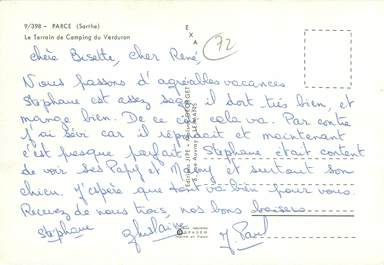 9/398 - PARCE (Sarthe)
Le Terrain de Camping du Verduron
EXA
72
Chère Bisette, cher René,
Nous passons d'agréables vacances
Stephane est assez sage il dort très bien, et
mange bien. De ce côté cela va. Par contre
j'ai sévi car il répondait et maintenant
c'est presque parfait. Stephane était content
de voir ses Papy et Mamy et surtout son
chien. J'espère que tout va bien pour vous.
Recevez de nous trois, nos bons baisers
Stephane
Ghislaine
J. Paul